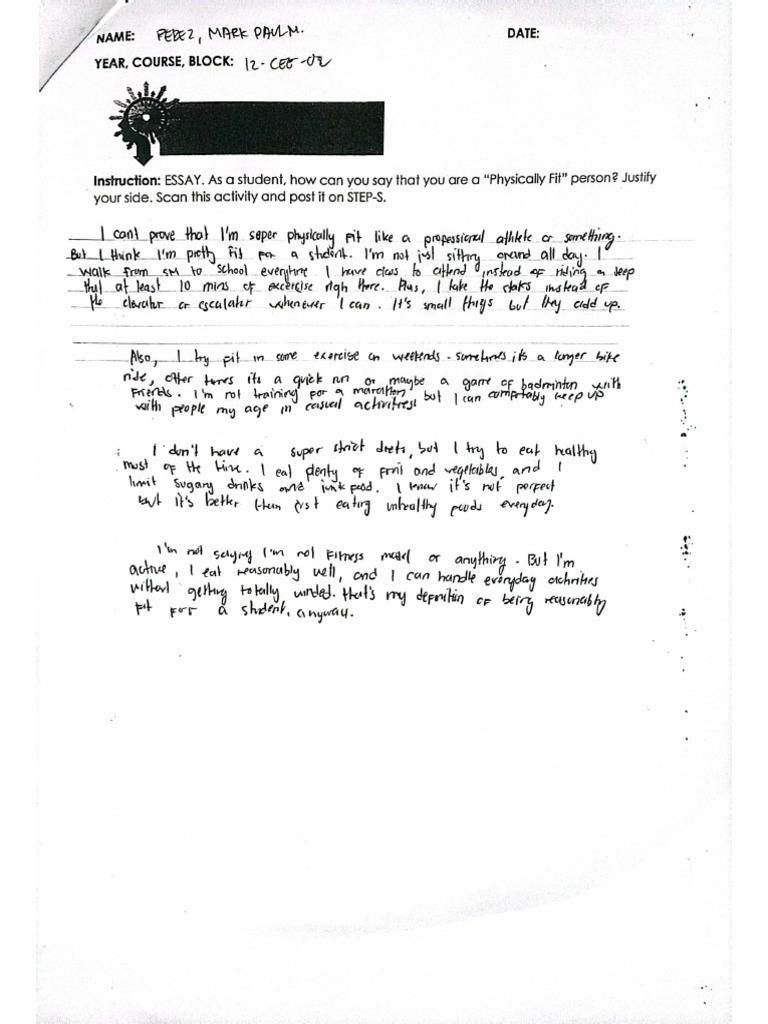 NAME: PEREZ, MARK PAUL M. DATE:
YEAR, COURSE, BLOCK: 12-CEE-02
Instruction: ESSAY. As a student, how can you say that you are a "Physically Fit" person? Justify
your side. Scan this activity and post it on STEP-S.
I can't prove that I'm super physically fit like a professional athlete or something.
But I think I'm pretty fit for a student. I'm not just sitting around all day. I
walk from SM to school everytime I have class to attend instead of riding a jeep
that at least 10 mins of excercise righ there. Plus, I take the stairs instead of
the elevator or escalator whenever I can. It's small things but they add up.
Also, I try fit in some exercise on weekends - sometimes its a longer bike
ride, other times its a quick run or maybe a game of badminton with
friends. I'm not training for a marathon but I can comfortably keep up
with people my age in casual activities!
I don't have a super strict diets, but I try to eat healthy
most of the time. I eat plenty of fruit and vegetables, and I
limit sugary drinks and junk food. I know it's not perfect
but it's better than just eating unhealthy foods everyday.
I'm not saying I'm not fitness model or anything. But I'm
active, I eat reasonably well, and I can handle everyday activities
without getting totally winded. that's my definition of being reasonably
fit for a student, anyway.